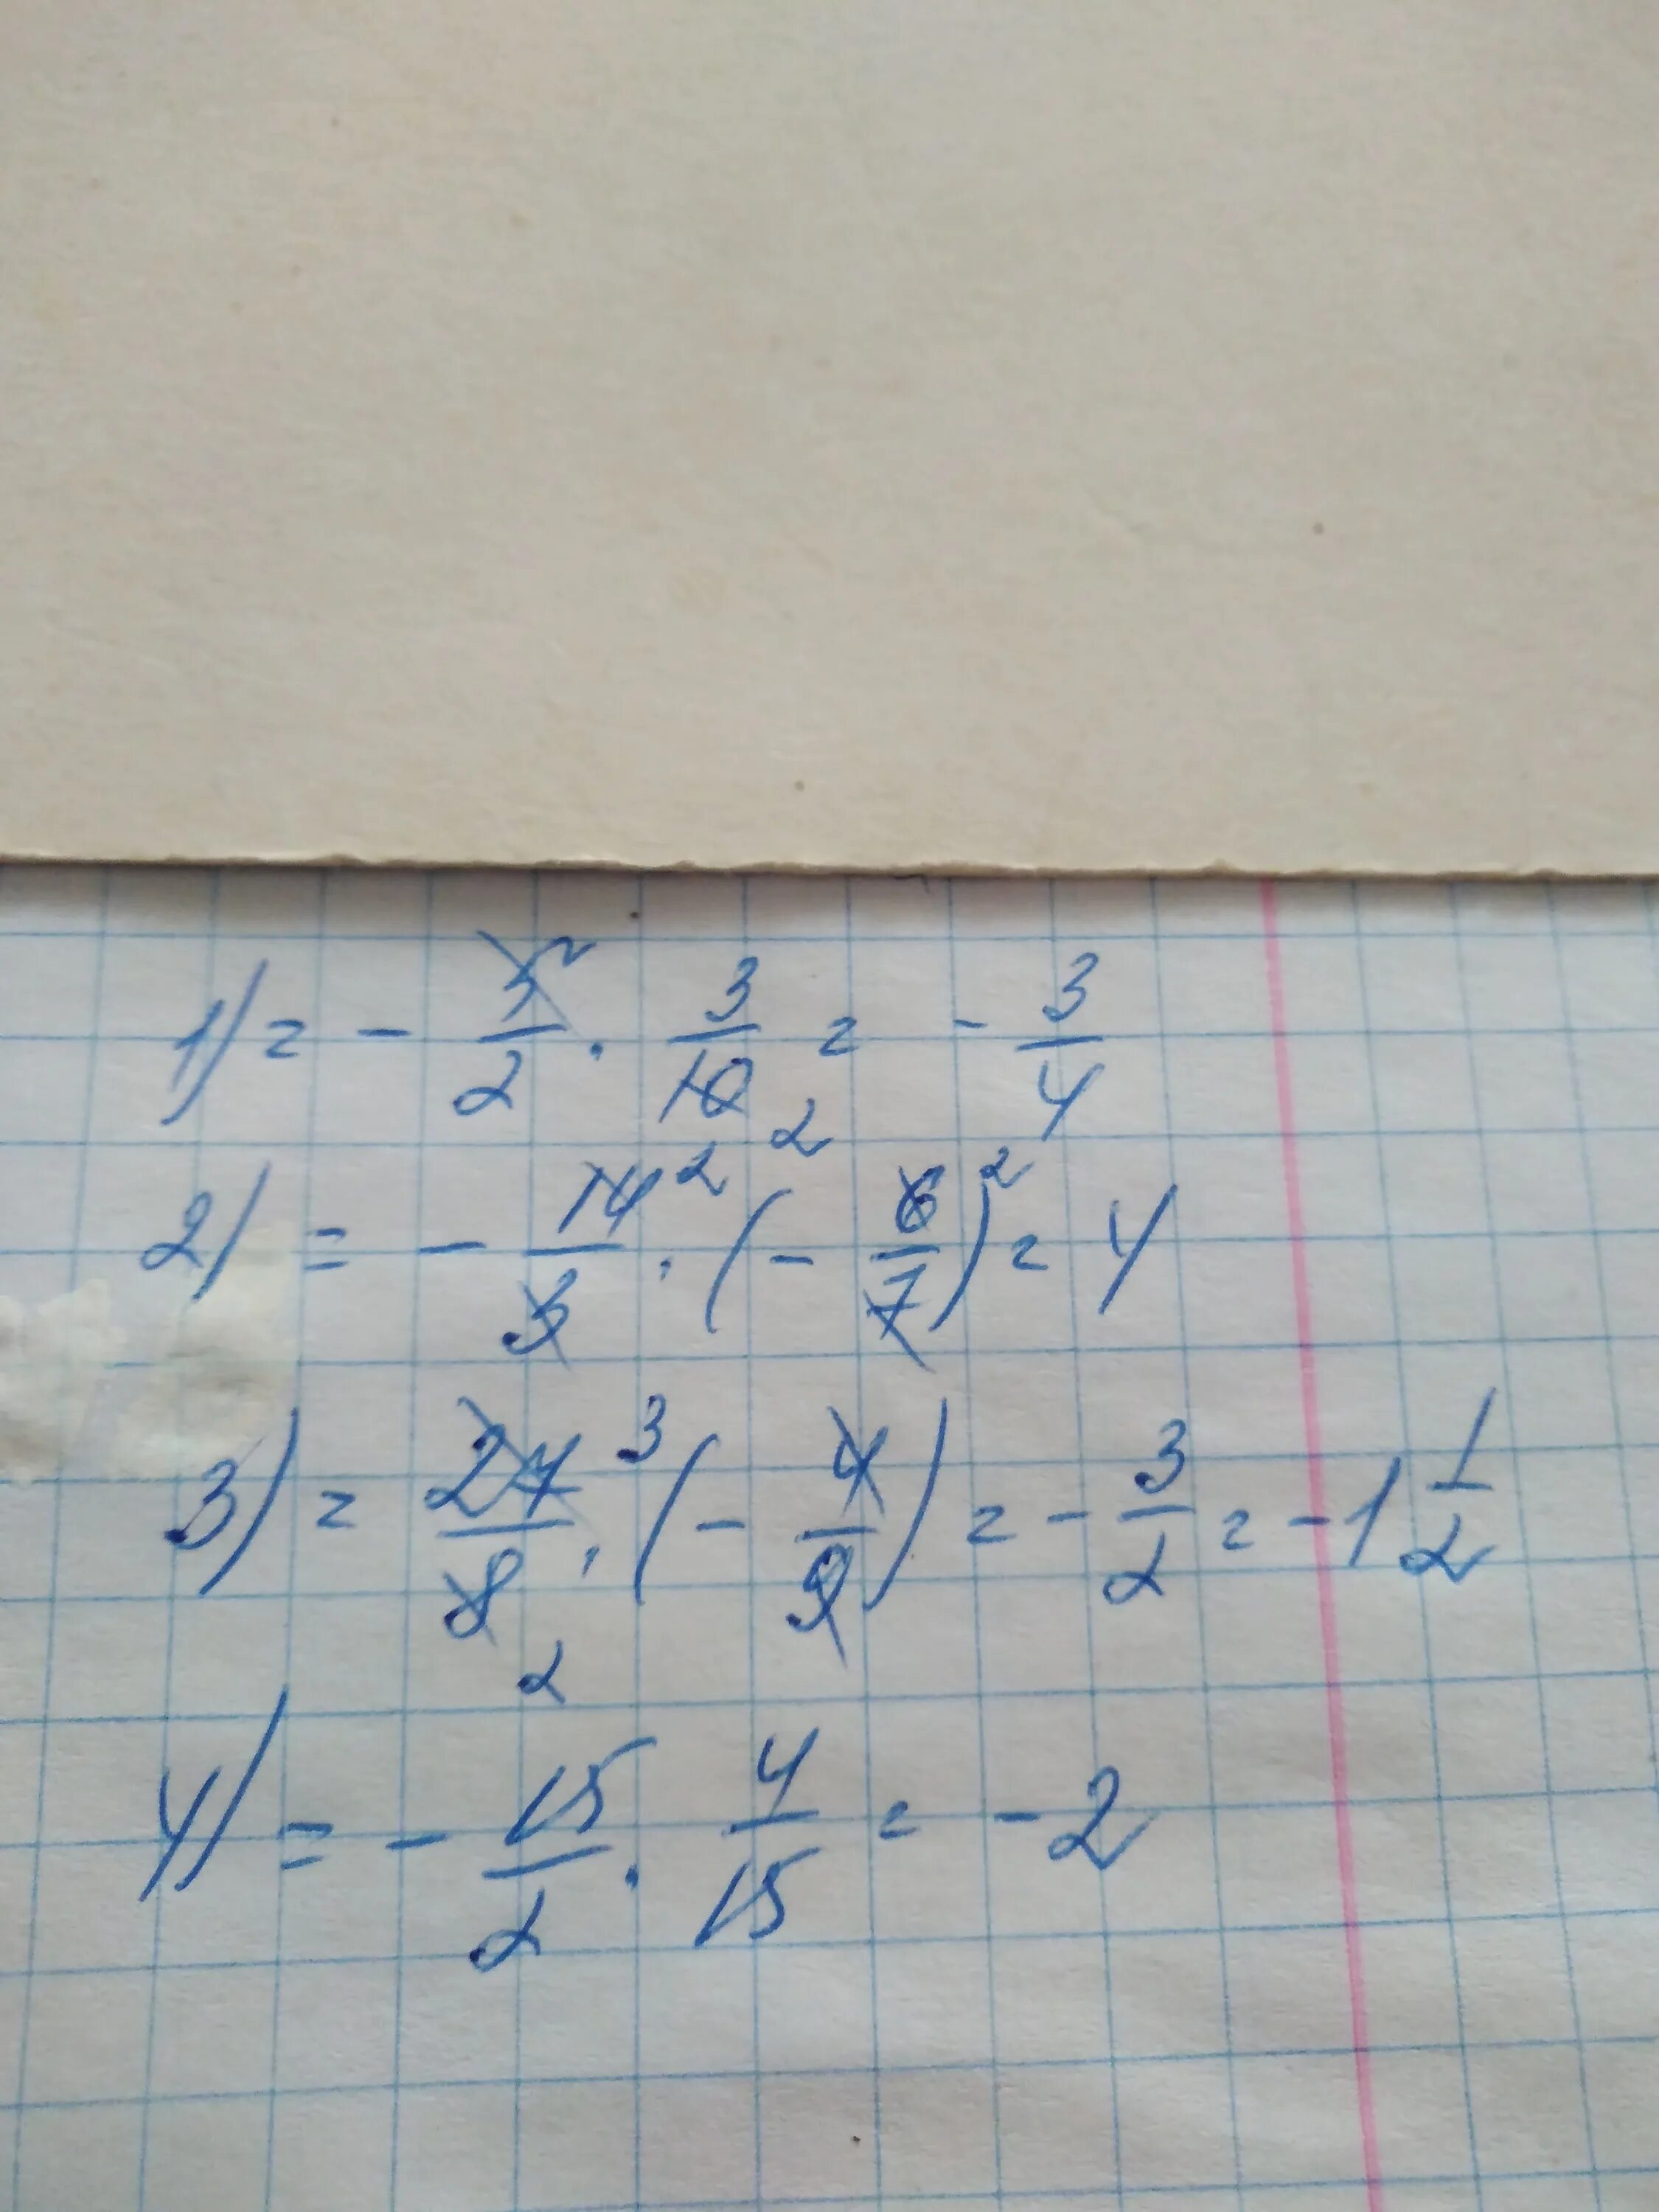 1) = - 5/2 · 3/10 2 = - 3/4
2) = - 14 2/3 · (- 6/7) 2 = 4
3) = 27 3/8 2 · (- 4/9) = - 3/2 = - 1 1/2
4) = - 15/2 · 4/15 = - 2